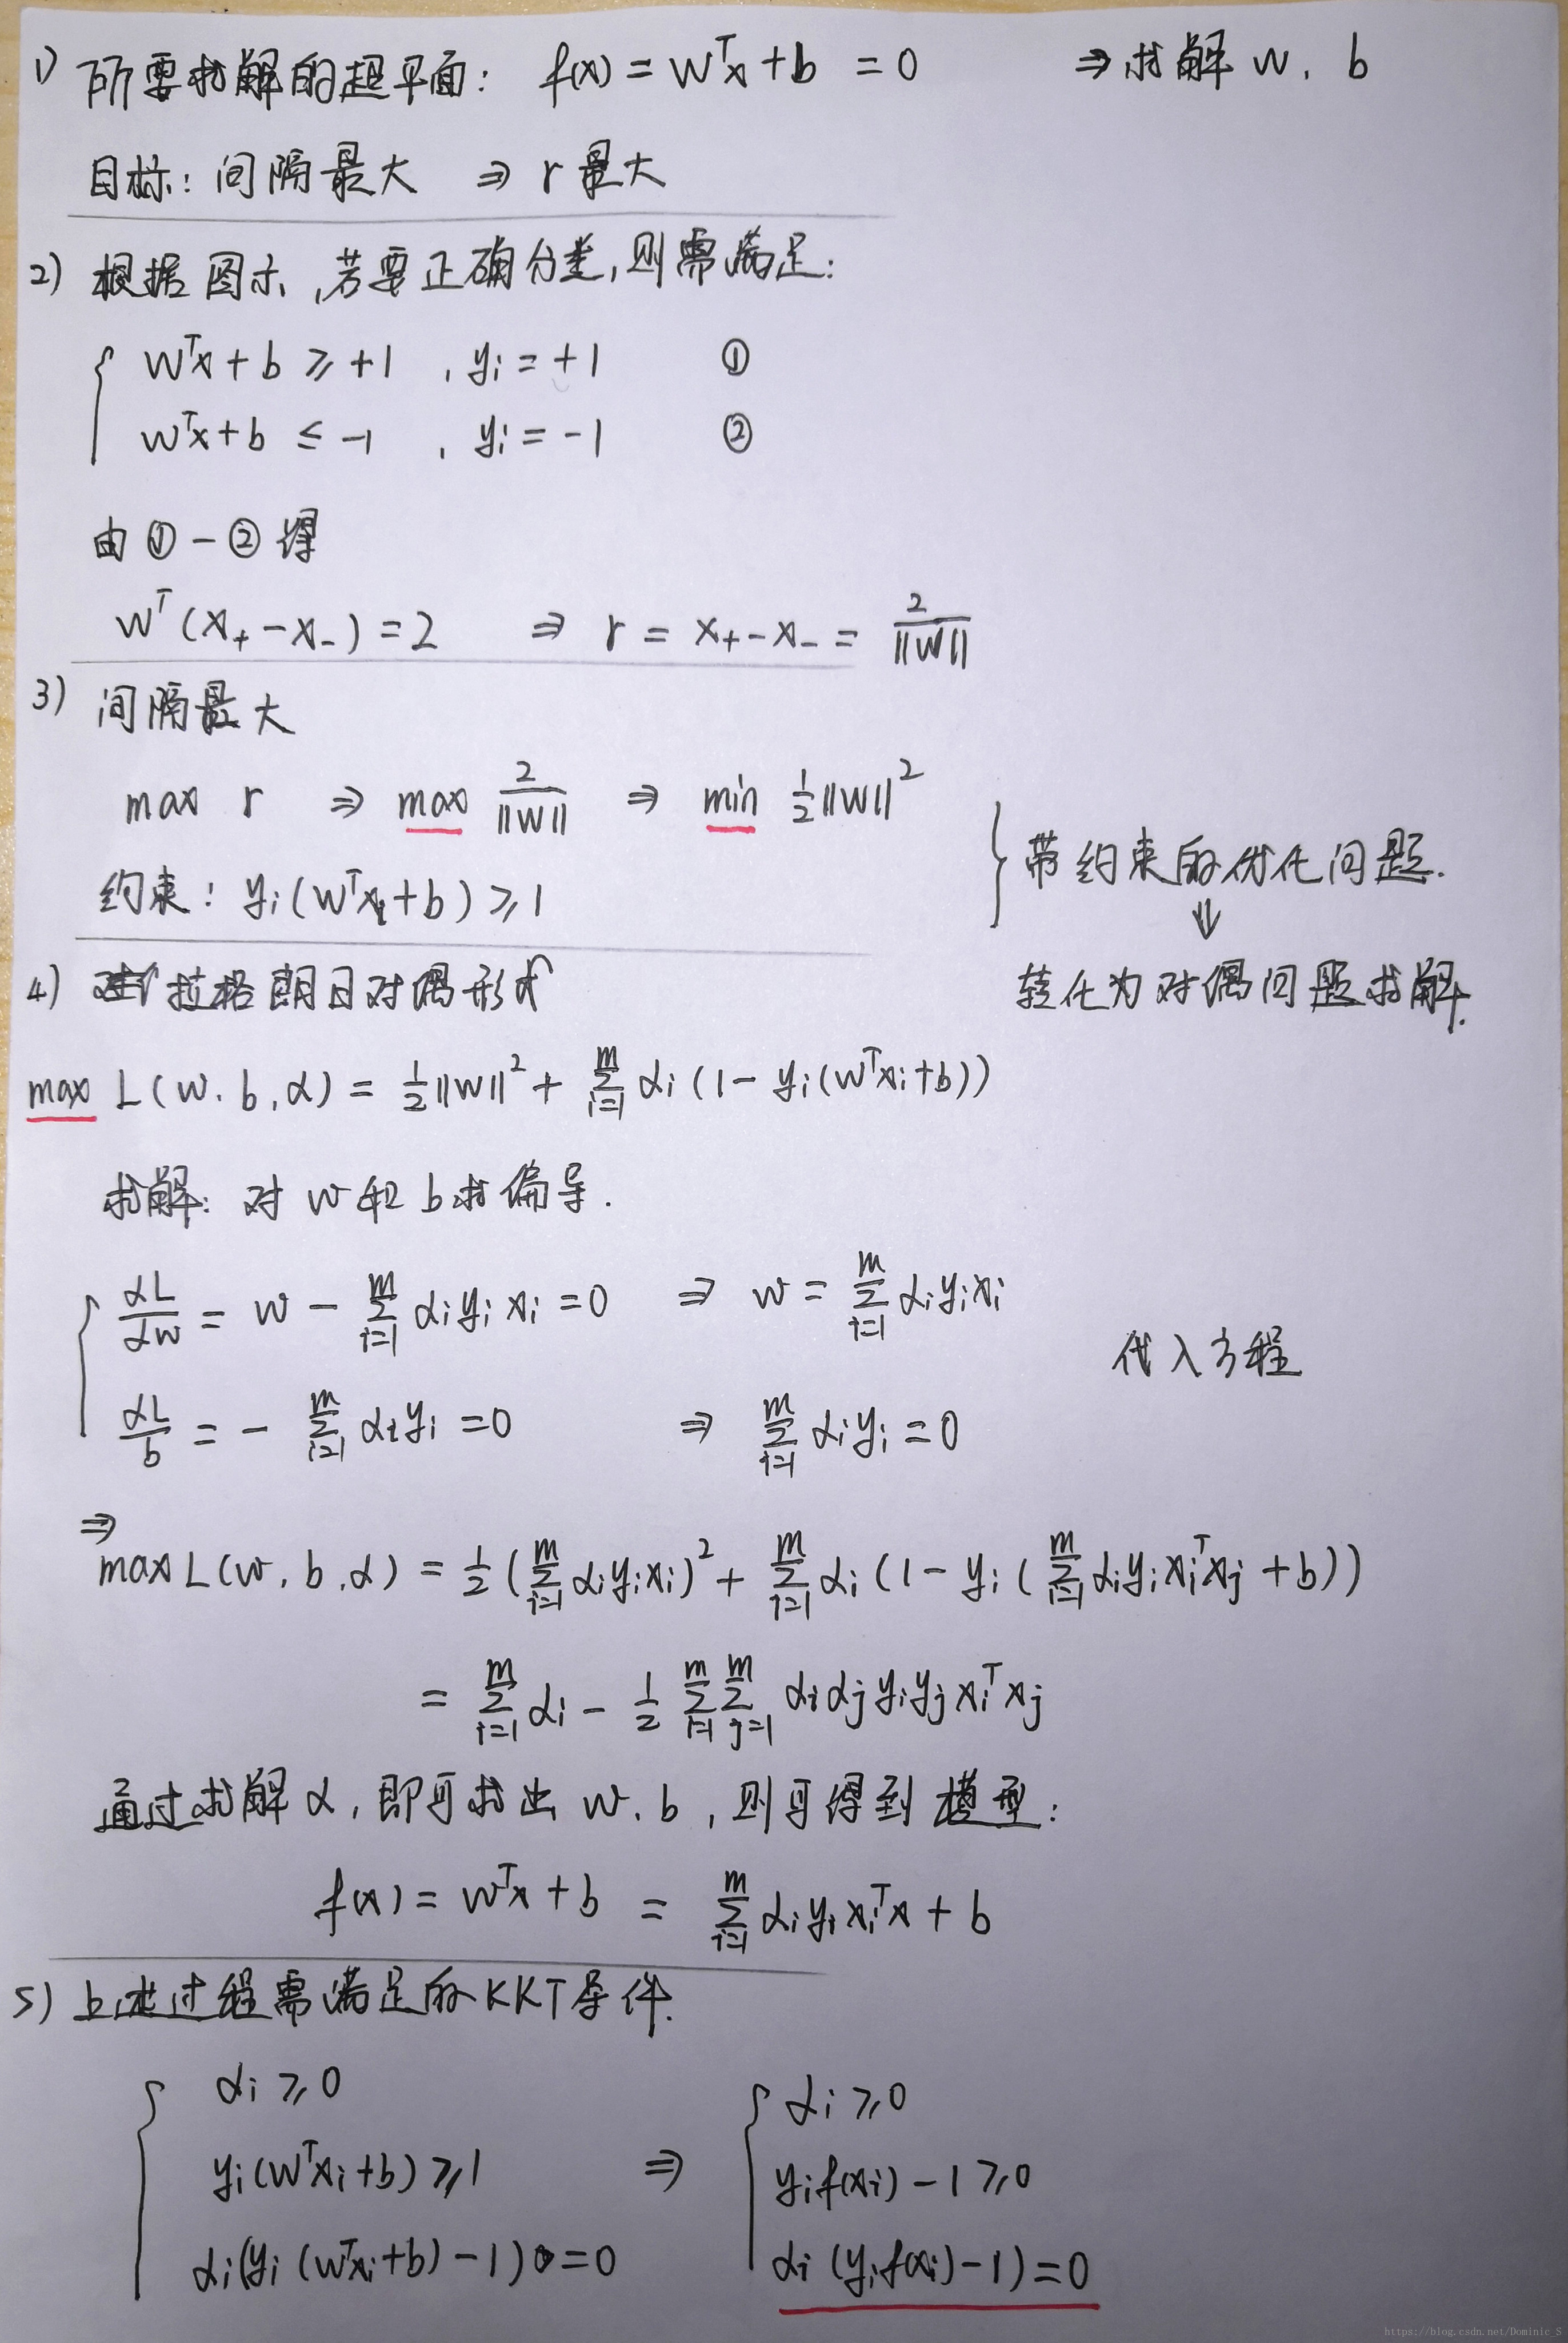 1) 所要求解的超平面: f(x) = wᵀx + b = 0 ⇒求解 w, b
目标: 间隔最大 ⇒ r最大
2) 根据图示,若要正确分类,则需满足:
{ wᵀx + b ≥ +1 , yᵢ = +1 ①
wᵀx + b ≤ -1 , yᵢ = -1 ②
由 ① - ② 得
wᵀ(x₊ - x₋) = 2 ⇒ r = x₊ - x₋ = 2/||w||
3) 间隔最大
max r ⇒ max 2/||w|| ⇒ min ½||w||²
约束: yᵢ(wᵀxᵢ + b) ≥ 1
} 带约束的优化问题.
⇓
转化为对偶问题求解.
4) 拉格朗日对偶形式
max L(w, b, α) = ½||w||² + Σᵢ₌₁ᵐ αᵢ(1 - yᵢ(wᵀxᵢ + b))
求解: 对 w 和 b 求偏导.
{ αL/αw = w - Σᵢ₌₁ᵐ αᵢyᵢxᵢ = 0 ⇒ w = Σᵢ₌₁ᵐ αᵢyᵢxᵢ
代入方程
αL/b = - Σᵢ₌₁ᵐ αᵢyᵢ = 0 ⇒ Σᵢ₌₁ᵐ αᵢyᵢ = 0
⇒
max L(w, b, α) = ½(Σᵢ₌₁ᵐ αᵢyᵢxᵢ)² + Σᵢ₌₁ᵐ αᵢ(1 - yᵢ(Σᵢ₌₁ᵐ αᵢyᵢxᵢᵀxⱼ + b))
= Σᵢ₌₁ᵐ αᵢ - ½ Σᵢ₌₁ᵐ Σⱼ₌₁ᵐ αᵢαⱼyᵢyⱼxᵢᵀxⱼ
通过求解α,即可求出 w, b,则可得到模型:
f(x) = wᵀx + b = Σᵢ₌₁ᵐ αᵢyᵢxᵢᵀx + b
5) 上述过程需满足的KKT条件.
{ αᵢ ≥ 0 { αᵢ ≥ 0
yᵢ(wᵀxᵢ + b) ≥ 1 ⇒ yᵢf(xᵢ) - 1 ≥ 0
αᵢ(yᵢ(wᵀxᵢ + b) - 1) = 0 αᵢ(yᵢf(xᵢ) - 1) = 0
https://blog.csdn.net/Dominic_S